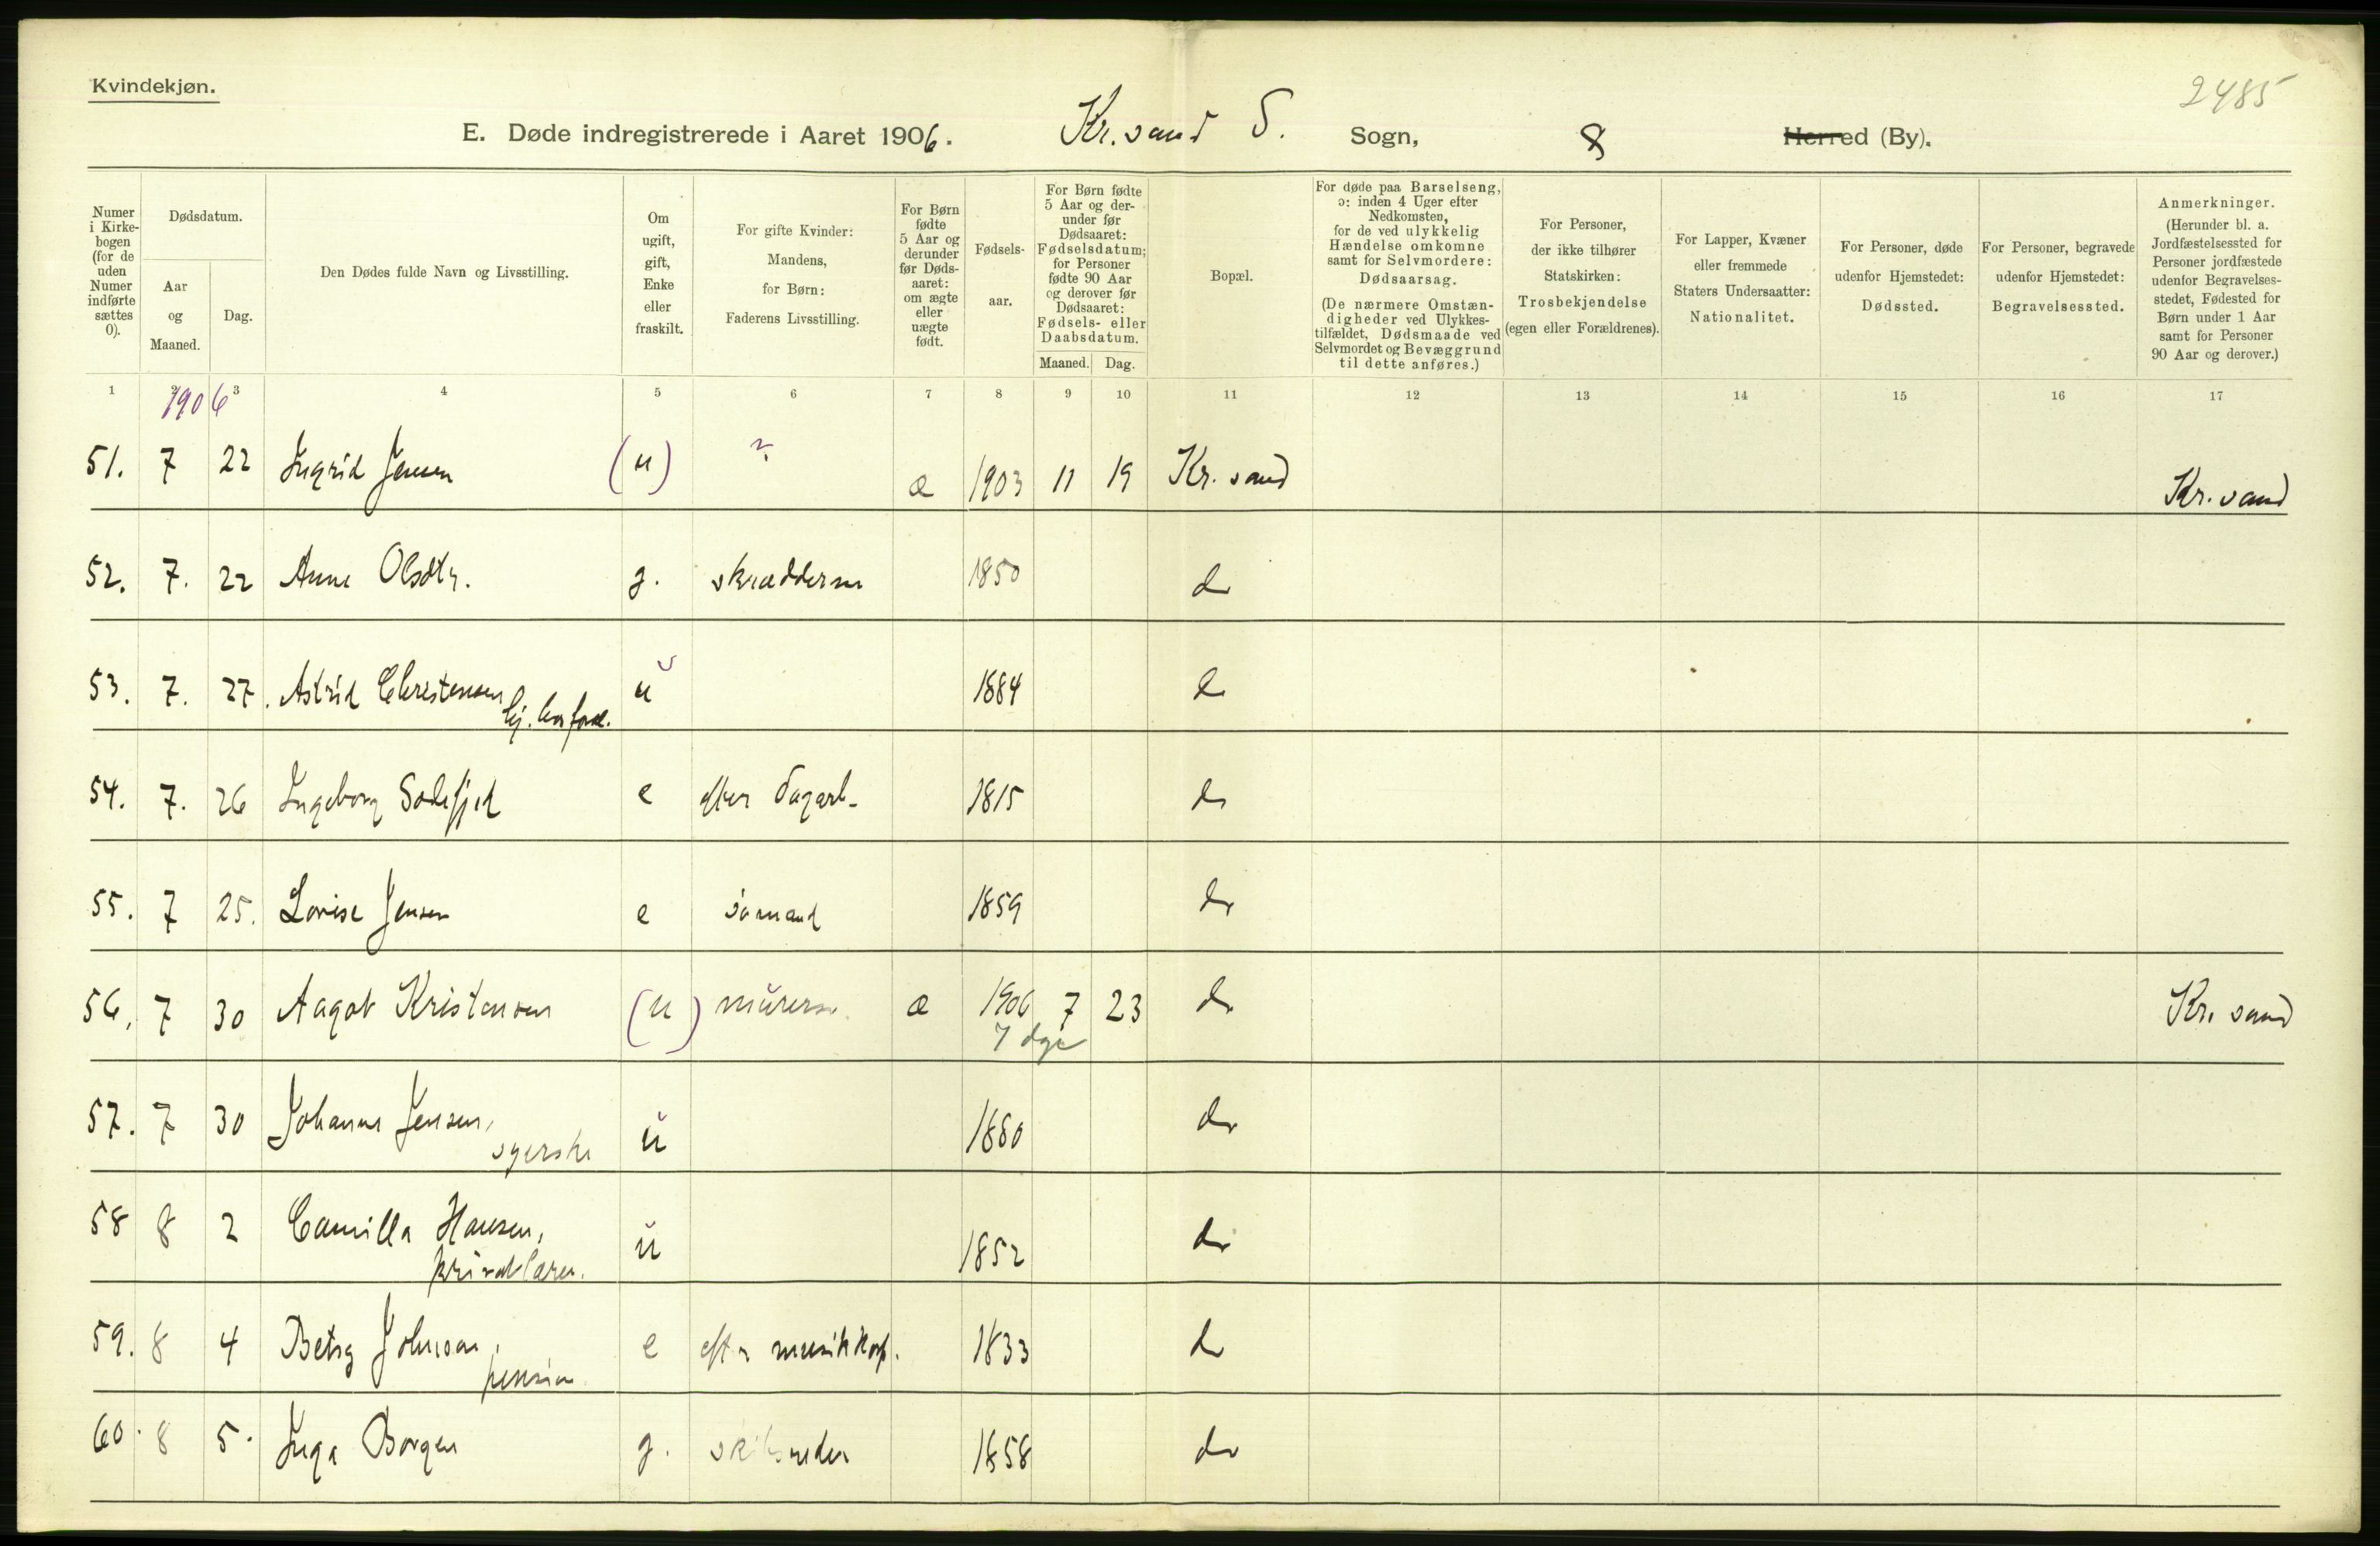 Kvindekjøn.
2485
E. Døde indregistrerede i Aaret 1906. Kr.sand S. Sogn, 8 Herred (By).
Numer i Kirkebogen (for de uden Numer indførte sættes 0).
Dødsdatum.
Aar og Maaned.
Dag.
Den Dødes fulde Navn og Livsstilling.
Om ugift, gift, Enke eller fraskilt.
For gifte Kvinder: Mandens, for Børn: Faderens Livsstilling.
For Børn fødte 5 Aar og derunder før Dødsaaret: om ægte eller uægte født.
Fødselsaar.
For Børn fødte 5 Aar og derunder før Dødsaaret: Fødselsdatum; for Personer fødte 90 Aar og derover før Dødsaaret: Fødsels- eller Daabsdatum.
Maaned. Dag.
Bopæl.
For døde paa Barselseng, ɔ: inden 4 Uger efter Nedkomsten, for de ved ulykkelig Hændelse omkomne samt for Selvmordere: Dødsaarsag. (De nærmere Omstændigheder ved Ulykkestilfældet, Dødsmaade ved Selvmordet og Bevæggrund til dette anføres.)
For Personer, der ikke tilhører Statskirken: Trosbekjendelse (egen eller Forældrenes).
For Lapper, Kvæner eller fremmede Staters Undersaatter: Nationalitet.
For Personer, døde udenfor Hjemstedet: Dødssted.
For Personer, begravede udenfor Hjemstedet: Begravelsessted.
Anmerkninger. (Herunder bl. a. Jordfæstelsessted for Personer jordfæstede udenfor Begravelsesstedet, Fødested for Børn under 1 Aar samt for Personer 90 Aar og derover.)
1 2 3 4 5 6 7 8 9 10 11 12 13 14 15 16 17
1906
51. 7 22 Ingrid Jensen (u) ? æ 1903 11 19 Kr.sand Kr.sand
52. 7. 22 Anne Olsdtr. g. skrædderm 1850 do
53. 7. 27. Astrid Christensen u 1884 do
hj. hos foræl.
54. 7. 26 Ingeborg e efter dagarb. 1815 do
55. 7 25. Lovise Jensen e sømand 1859 do
56. 7 30 Aagot Kristensen (u) murersv. æ 1906 7 23 do Kr.sand
7 dge
57. 7 30 Johanne Jensen, u 1880 do
syerske
58 8 2 Camilla Hansen, u 1852 do
privatlærer.
59. 8 4 Betsy Johnson, e eft. musikkorp. 1833 do
pension
60. 8 5. Inga Borgen g. skibsreder 1858 do